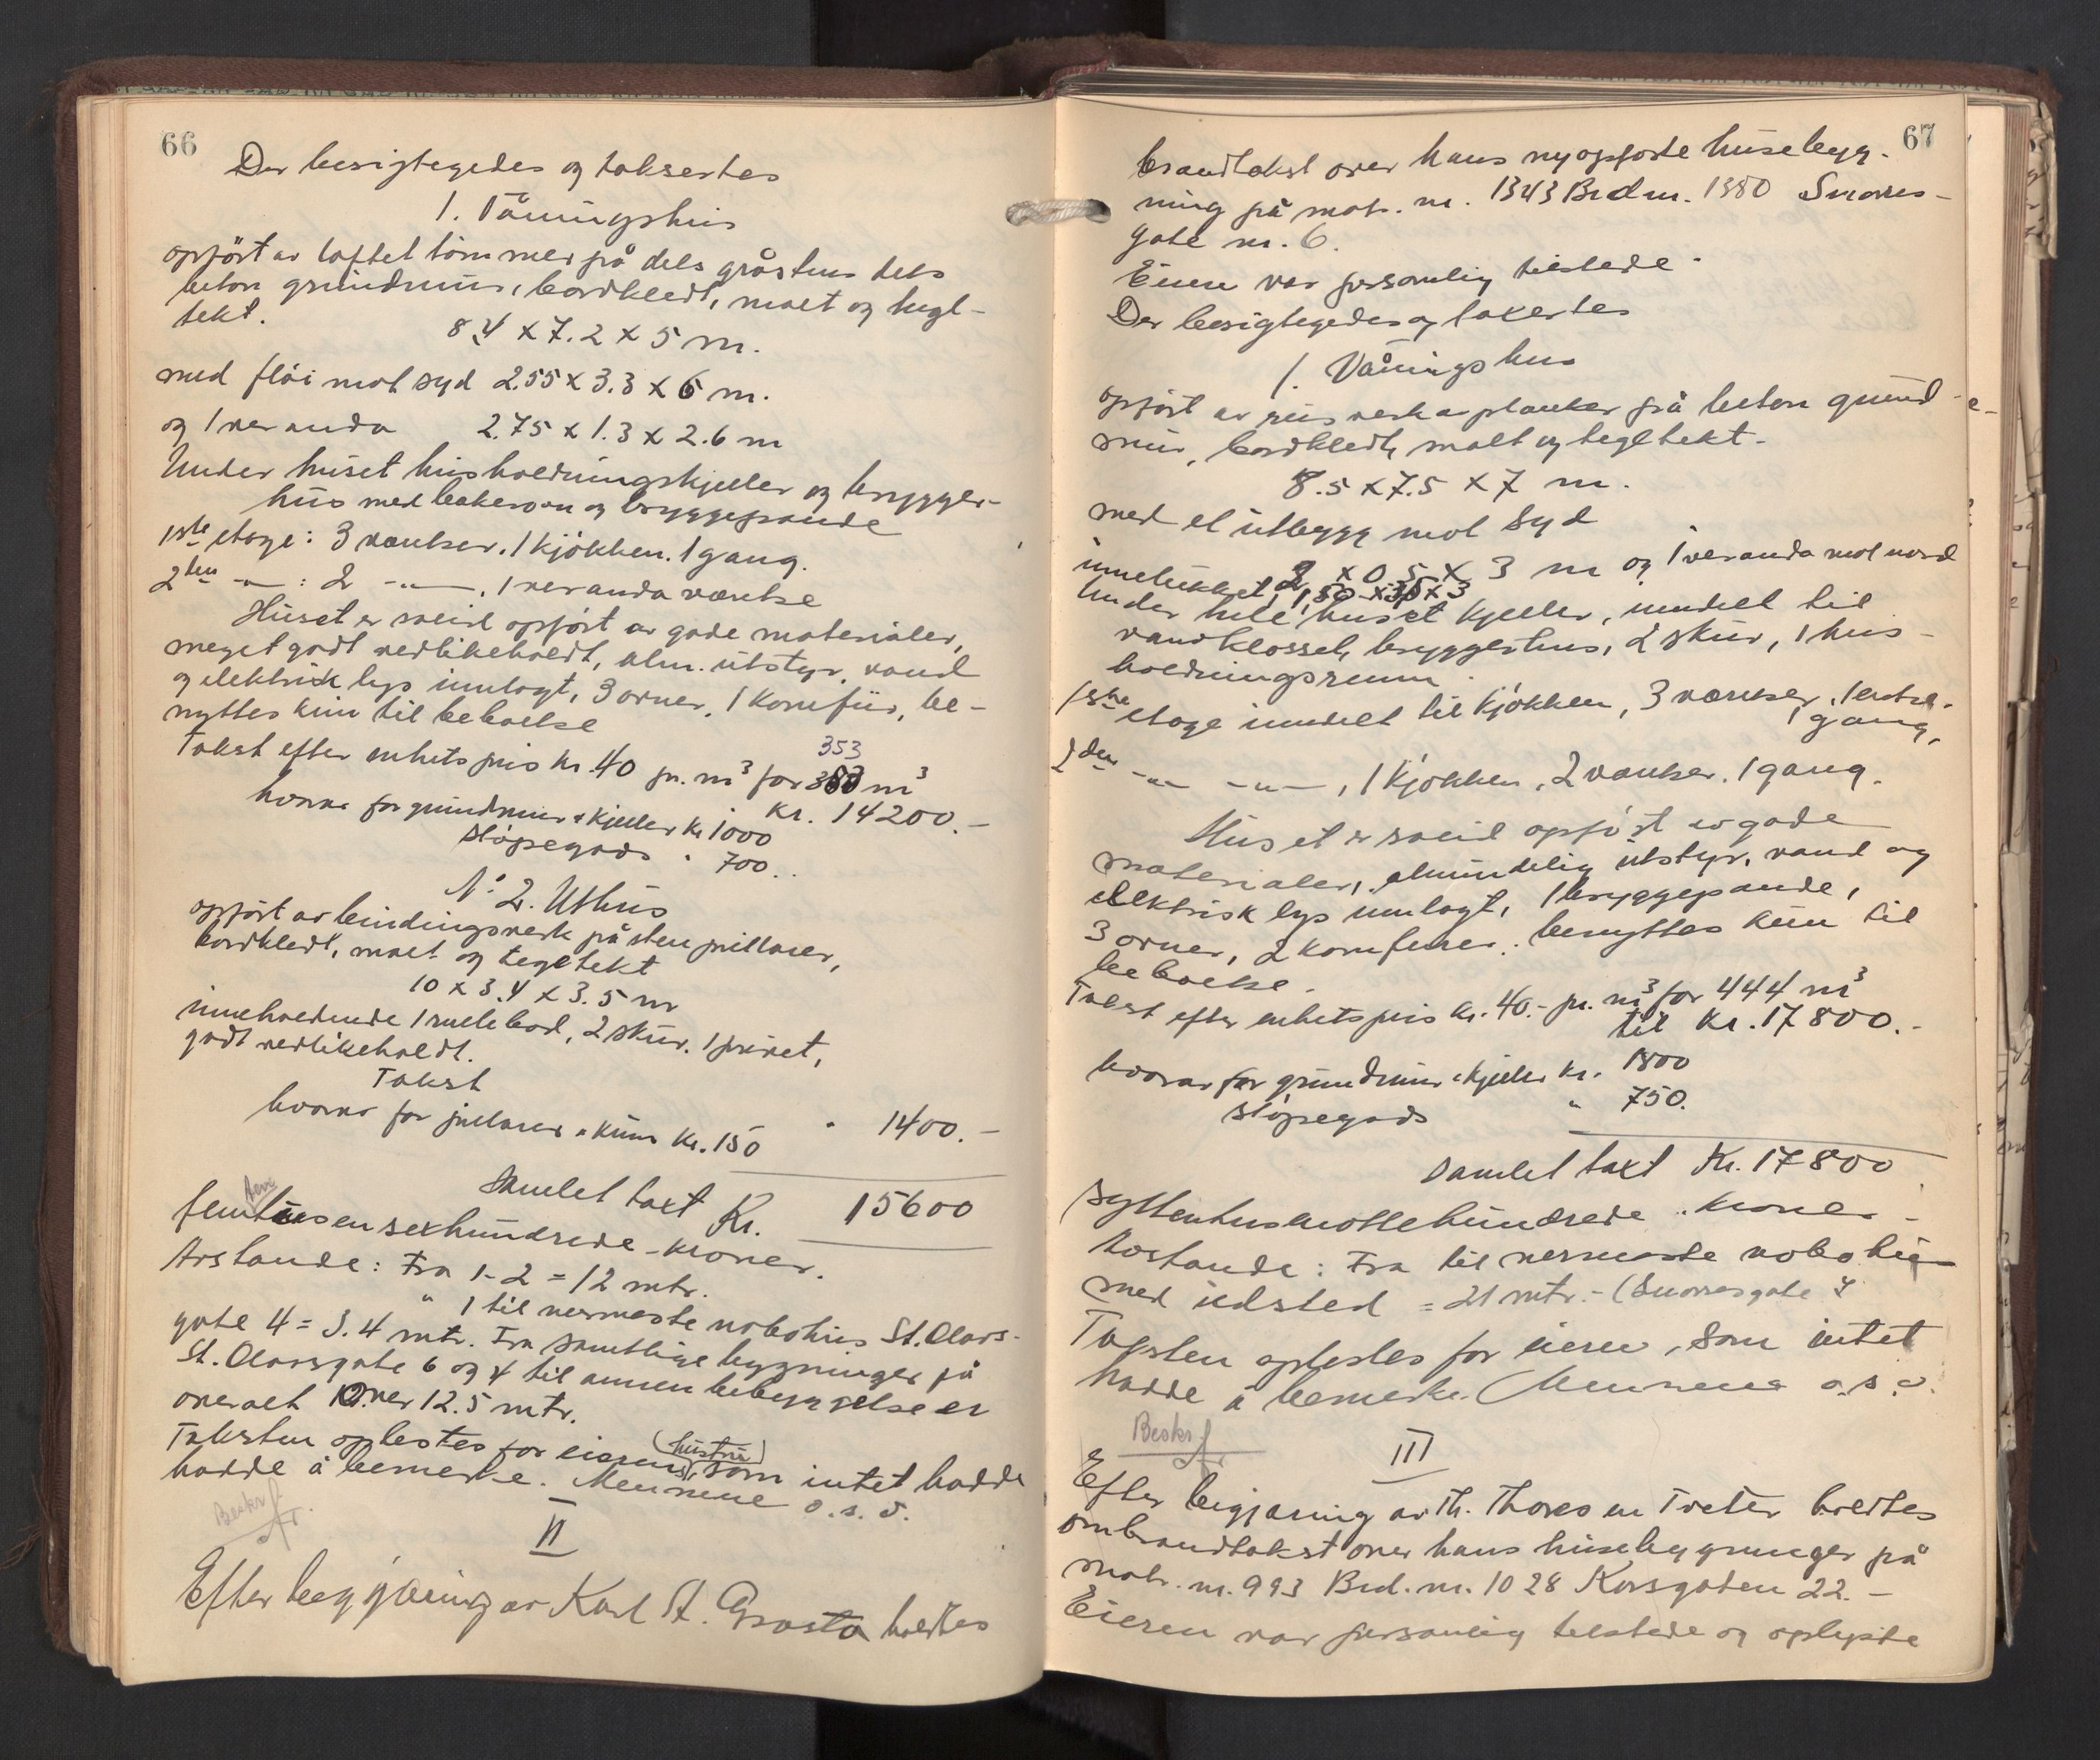 66
Der besigtegedes og taksertes
1. Våningshus
opført av loftet tømmer på dels gråstens dels
beton grundmur, bordkledt, malt og tegl-
tekt.
8.4 x 7.2 x 5 m.
med fløi mot syd 2.55 x 3.3 x 6 m.
og 1 veranda 2.75 x 1.3 x 2.6 m
Under huset husholdningskjeller og brygger-
hus med bakerovn og bryggepande
1ste etage: 3 værelser. 1 kjøkken. 1 gang.
2den -"- : 2 -"-, 1 veranda værelse
Huset er solid opført av gode materialer,
meget godt vedlikeholdt, alm. utstyr, vand
og elektrisk lys innlagt, 3 ovner, 1 komfur, be-
nyttes kun til beboelse
353
Takst efter enhetspris kr. 40 pr. m³ for m³
Kr. 14200.-
hvorav for grundmur & kjeller kr 1000
støpegods " 700.
No 2. Uthus
opført av bindingsverk på sten pillarer,
bordkledt, malt og tegltekt
10 x 3.4 x 3.5 m
inneholdende 1 rullebod, 2 skur. 1 privet,
godt vedlikeholdt.
Takst
" 1400.-
hvorav for pillarer & kum kr. 150
Samlet taxt Kr. 15600
femtentusen sekshundrede - kroner.
Avstande: Fra 1-2 = 12 mtr.
" 1 til nermeste nabohus St. Olavs-
gate 4 = 3.4 mtr. Fra samtlige bygninger på
St. Olavsgate 6 og 4 til annen bebyggelse er
overalt over 12.5 mtr.
Taksten oplestes for eierens (hustru) som intet hadde
hadde å bemerke. Mennene o.s.v.
Beskr.
II
Efter begjæring av Karl St. Grasta holdtes
67
brandtakst over hans nyopførte husebygg-
ning på matr. nr. 1343 Brd nr. 1380 Snorres-
gate nr. 6.
Eieren var personlig tilstede.
Der besigtegedes og taxertes
1. Våningshus
opført av reisverk av planker på beton grund-
mur, bordkledt, malt og tegltekt.
8.5 x 7.5 x 7 m.
med et utbygg mot syd
2 x 0.5 x 3 m og 1 veranda mot nord
innelukket,
Under hele huset kjeller, inndelt til
vandklosset, bryggerhus, 2 skur, 1 hus-
holdningsrum.
1ste etage inndelt til kjøkken, 3 værelser, 1 entre.
1 gang,
2den -"- -"-, 1 kjøkken, 2 værelser. 1 gang.
Huset er solid opført av gode
materialer, almindelig utstyr, vand og
elektrisk lys innlagt, 1 bryggepande,
3 ovner, 2 komfurer. benyttes kun til
beboelse.
Takst efter enhetspris kr. 40.- pr. m³ for 444 m³
til kr. 17800.-
hvorav for grundmur & kjeller kr. 1800
støpegods " 750.
Samlet taxt Kr. 17800
syttentusenottehundrede - kroner -
Avstande: Fra til nermeste nabohus
med ildsted = 21 mtr. - (Snorresgate 4
Taksten oplestes for eieren, som intet
hadde å bemerke. Mennene o.s.v.
Beskr.
III
Efter begjæring av Th. Thoresen Tveter holdtes
ombrandtakst over hans husebygninger på
matr. nr. 993 Brd. nr. 1028 Korsgaten 22. -
Eieren var personlig tilstede og oplyste